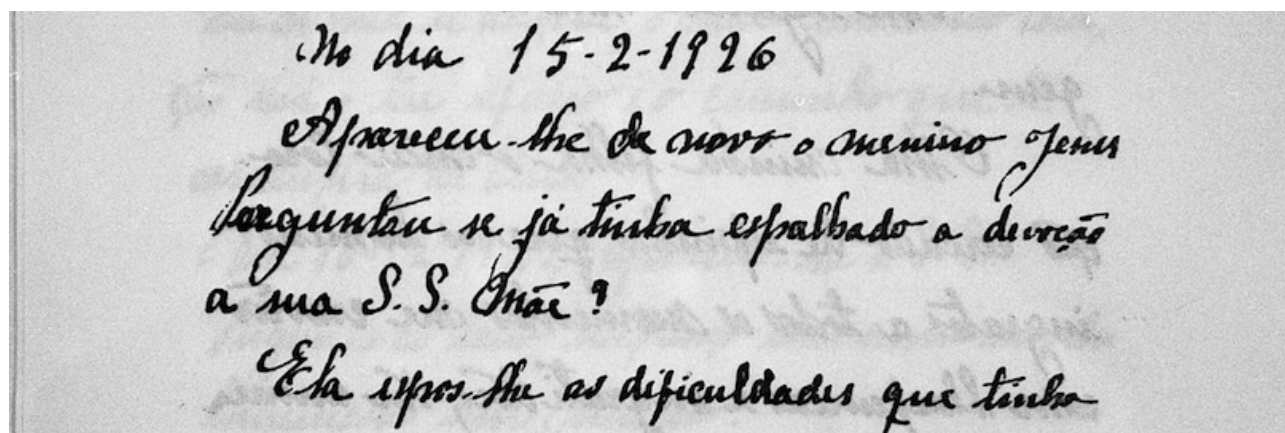 No dia 15-2-1926
Apareceu-lhe de novo o menino Jesus
Perguntou se já tinha espalhado a devoção
a sua S. S. Mãe?
Ela expos-lhe as dificuldades que tinha